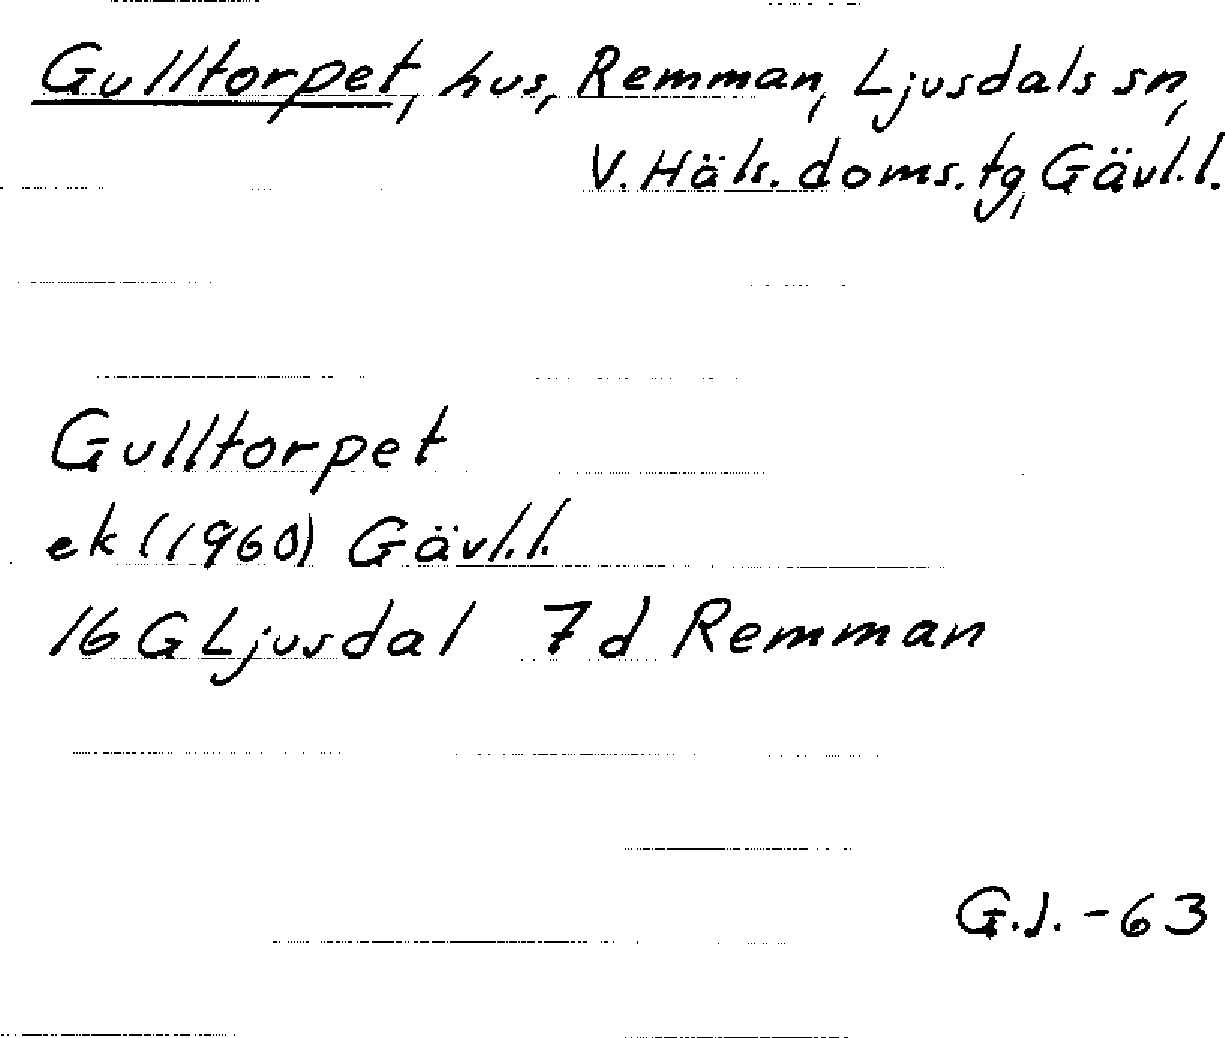 Gulltorpet, hus, Remman, Ljusdals sn,
V. Häls. doms. tg, Gävl.l.
Gulltorpet
ek (1960) Gävl.l.
16 G Ljusdal 7 d Remman
G.J. -63